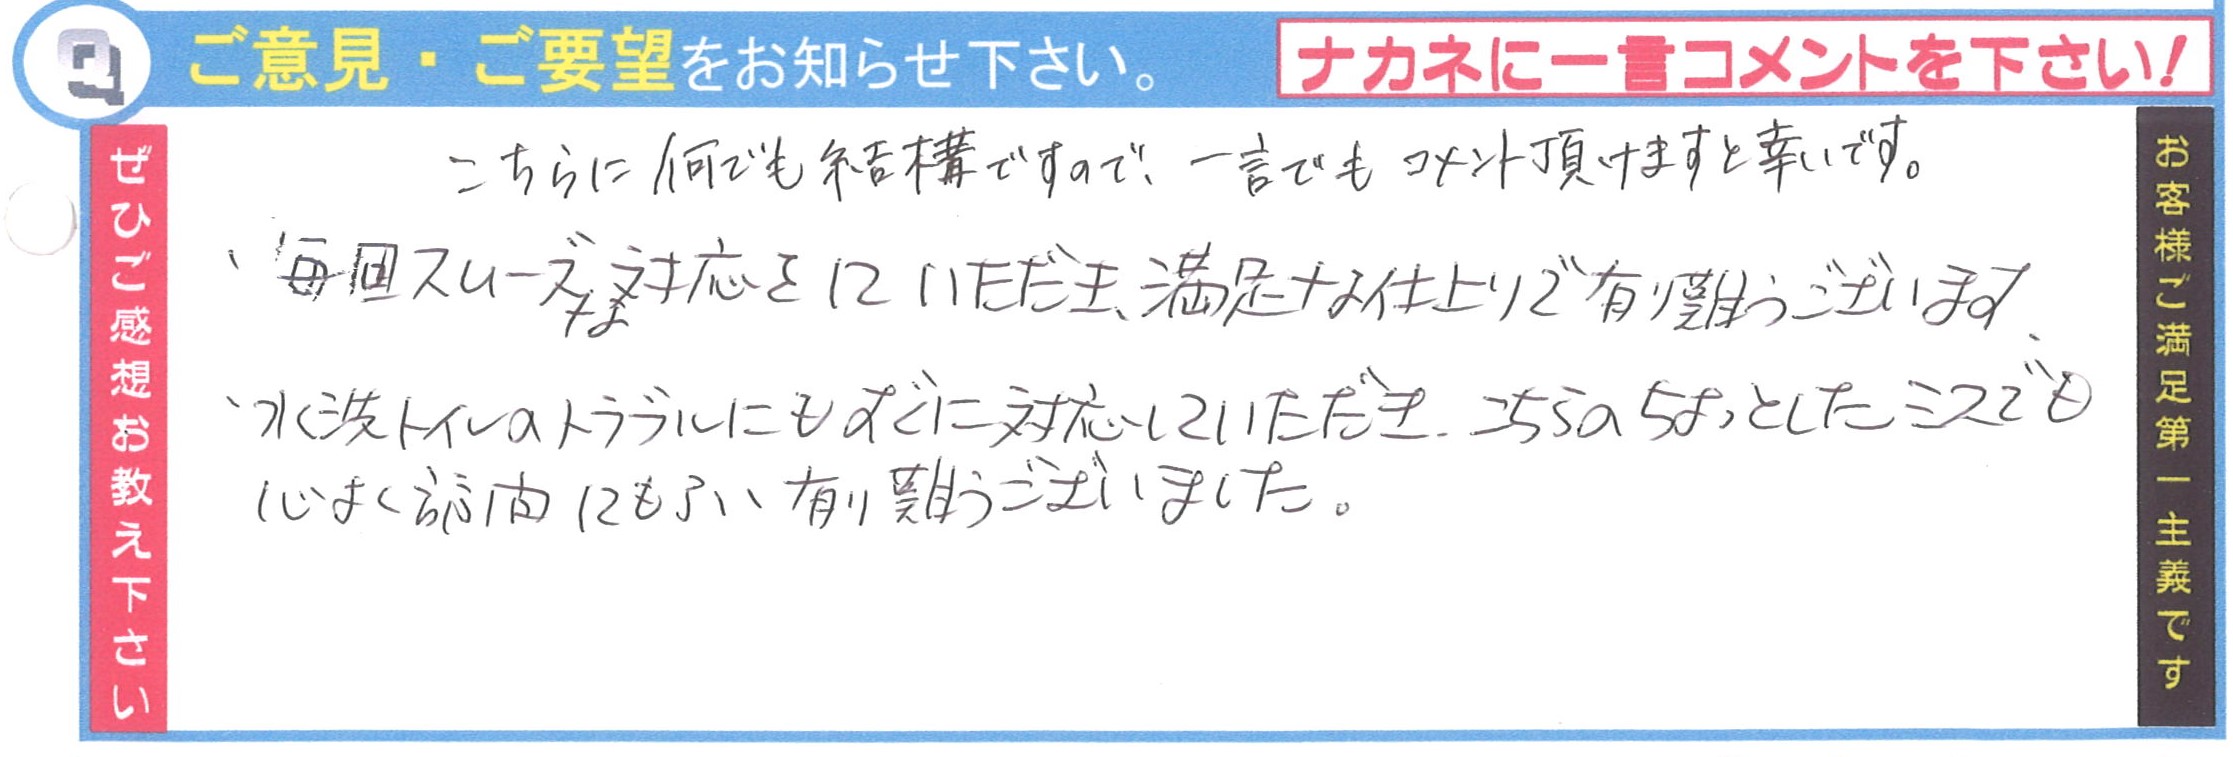 Q ご意見・ご要望をお知らせ下さい。
ナカネに一言コメントを下さい!
ぜひご感想お教え下さい
こちらに何でも結構ですので、一言でもコメント頂けますと幸いです。
、毎回スムーズな対応をしていただき、満足な仕上りで有り難うございます、
、水洗トイレのトラブルにもすぐに対応していただき、こちらのちょっとしたミスでも
心よく訪問にも
有り難うございました。
お客様ご満足第一主義です